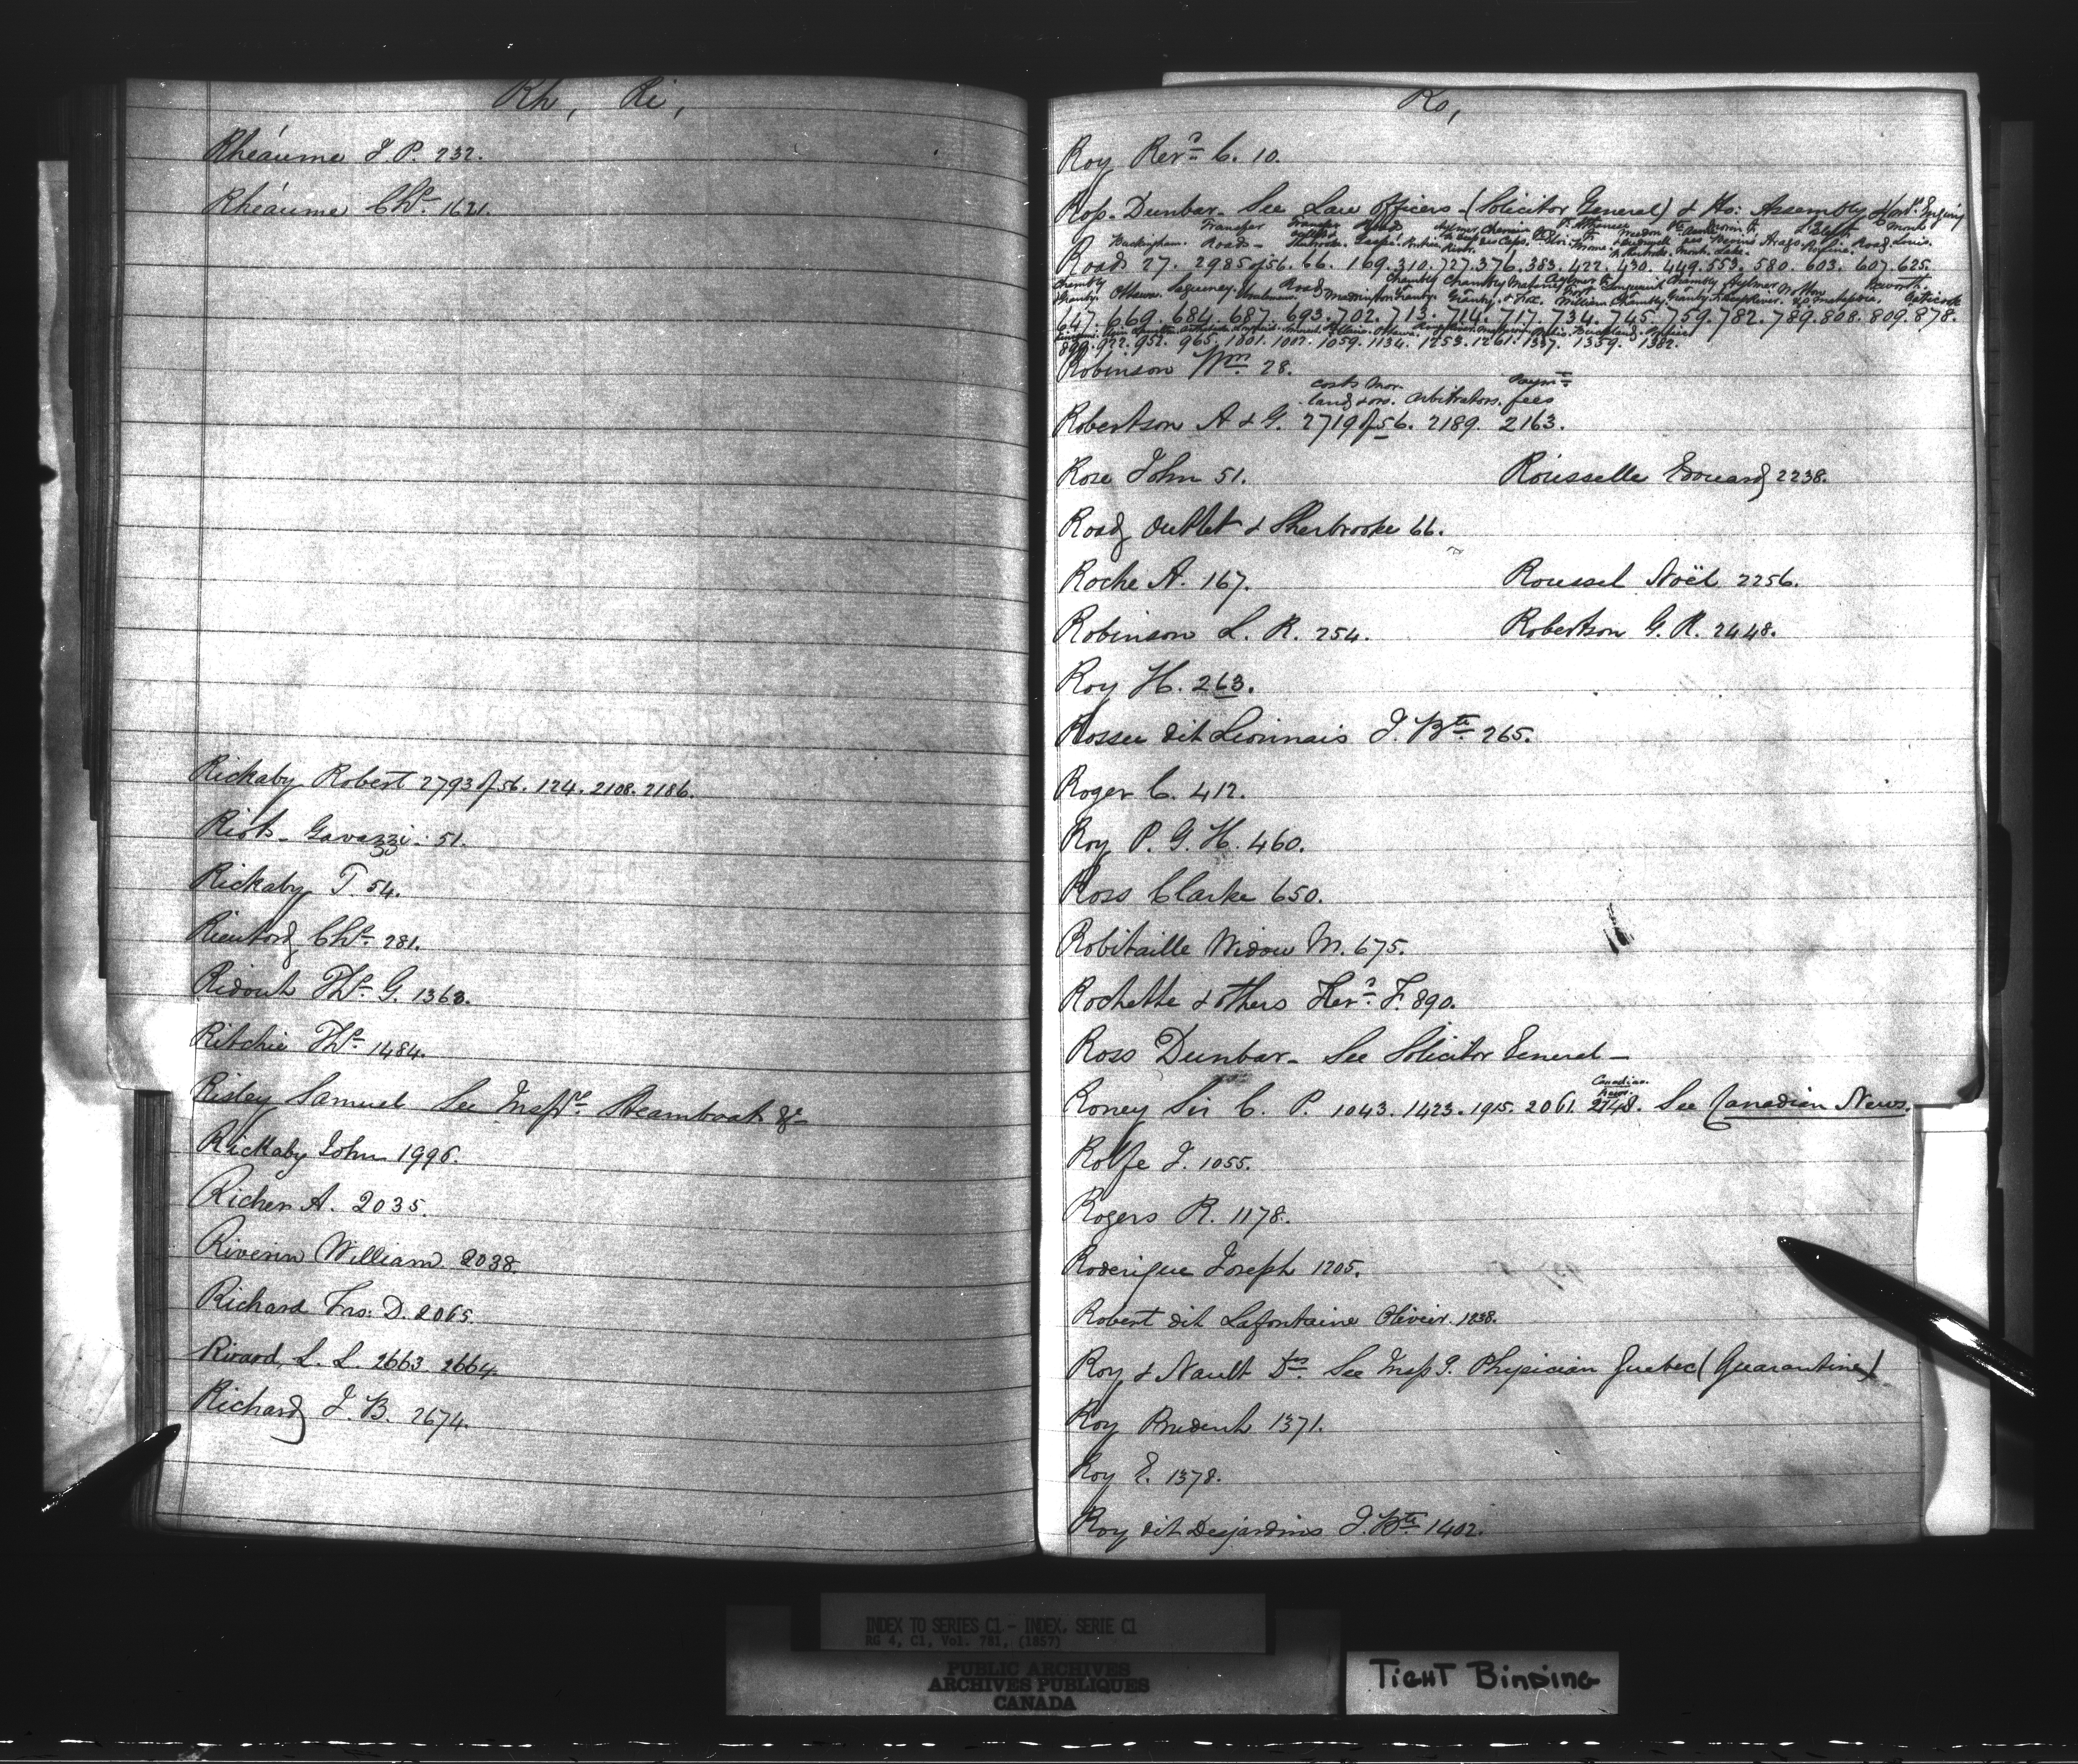 Rh, Ri,
Rhéaume J. P. 232.
Rhéaume Chs. 1621.
Rickaby Robert 2793 of 56. 124. 2108. 2186.
Riots - Gavazzi. 51.
Rickaby T. 54.
Rientord Chs. 281.
Ridout Ths. G. 1363.
Ritchie Ths. 1484.
Risley Samuel See Inspr. Steamboats &c
Rickaby John 1996.
Richer A. 2035.
Riverin William 2038.
Richard Frs: D. 2065.
Rivard, L. L. 2663. 2664.
Richard J. B. 2674.
Ro,
Roy Revd. C. 10.
Ross. Dunbar - See Law Officers - (Solicitor General) & Ho: Assembly
Buckingham. Roads -
Roads 27. 2985 of 56. 66. 169. 310. 727. 376. 383. 422. 430. 449. 553. 580. 603. 607. 625.
647. 669. 684. 687. 693. 702. 713. 714. 717. 734. 745. 759. 782. 789. 808. 809. 878.
899. 922. 952. 965. 1001. 1007. 1059. 1134. 1253. 1261. 1337. 1359. 1382.
Robinson Wm. 28.
costs Mor. Paymt.
land & ors. arbitrators. fees
Robertson A & G. 2719 of 56. 2189. 2163.
Rose John 51. Rousselle Edouard 2238.
Road Outlet & Sherbrooke 66.
Roche A. 167. Roussel Noël 2256.
Robinson L. R. 254. Robertson G. R. 2448.
Roy H. 263.
Rosseu dit Lionnais J. Bte. 265.
Roger C. 412.
Roy P. G. H. 460.
Ross Clarke 650.
Robitaille Widow M. 675.
Rochette & others F. 890.
Ross Dunbar - See Solicitor General -
Canadian
News
Roney Sir C. P. 1043. 1423. 1915. 2061. 2748. See Canadian News.
Rolfe J. 1055.
Rogers R. 1178.
Roderigue Joseph 1205.
Robert dit Lafontaine Olivier. 1238.
Roy & Nault Drs. See Inspg. Physician Quebec (Quarantine)
Roy Prudent 1371.
Roy E. 1378.
Roy dit Desjardins J. Bte 1402.
INDEX TO SERIES C1 - INDEX, SERIE C1
RG 4, C1, Vol. 781, (1857)
PUBLIC ARCHIVES
ARCHIVES PUBLIQUES
CANADA
TIGHT BINDING